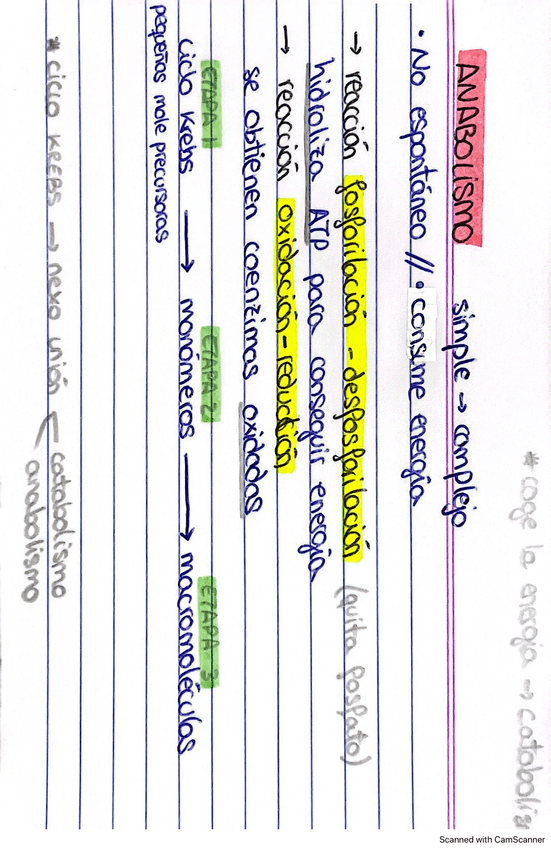 * coge la energia → catabolis
ANABOLISMO simple → complejo
• No espontáneo // • consume energía
→ reacción fosforilación - desfosforilación (quita fosfato)
hidroliza ATP para conseguir energía
→ reacción oxidación-reducción
se obtienen coenzimas oxidadas
ETAPA 1 ETAPA 2 ETAPA 3
ciclo Krebs → monómeros → macromoléculas
pequeñas mole precursoras
* ciclo KREBS → nexo unión catabolismo
anabolismo
Scanned with CamScanner